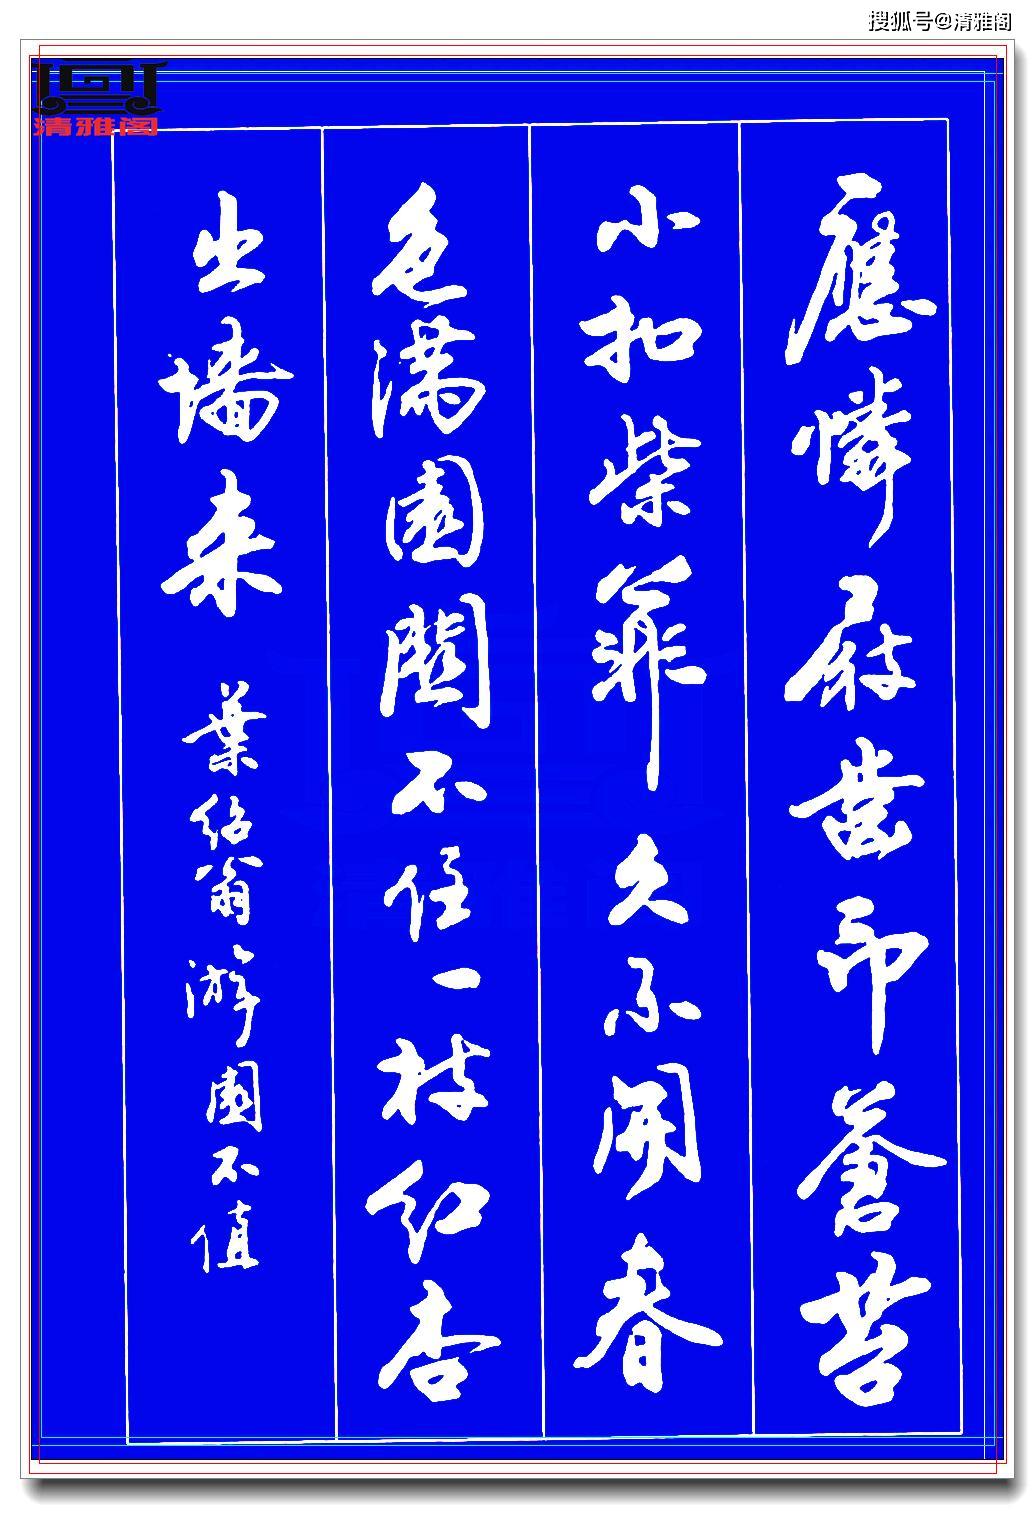 搜狐号@清雅阁
清雅阁
應憐屐齒印蒼苔
小扣柴扉久不開春
色满園關不住一枝红杏
出墙来 葉绍翁游園不值